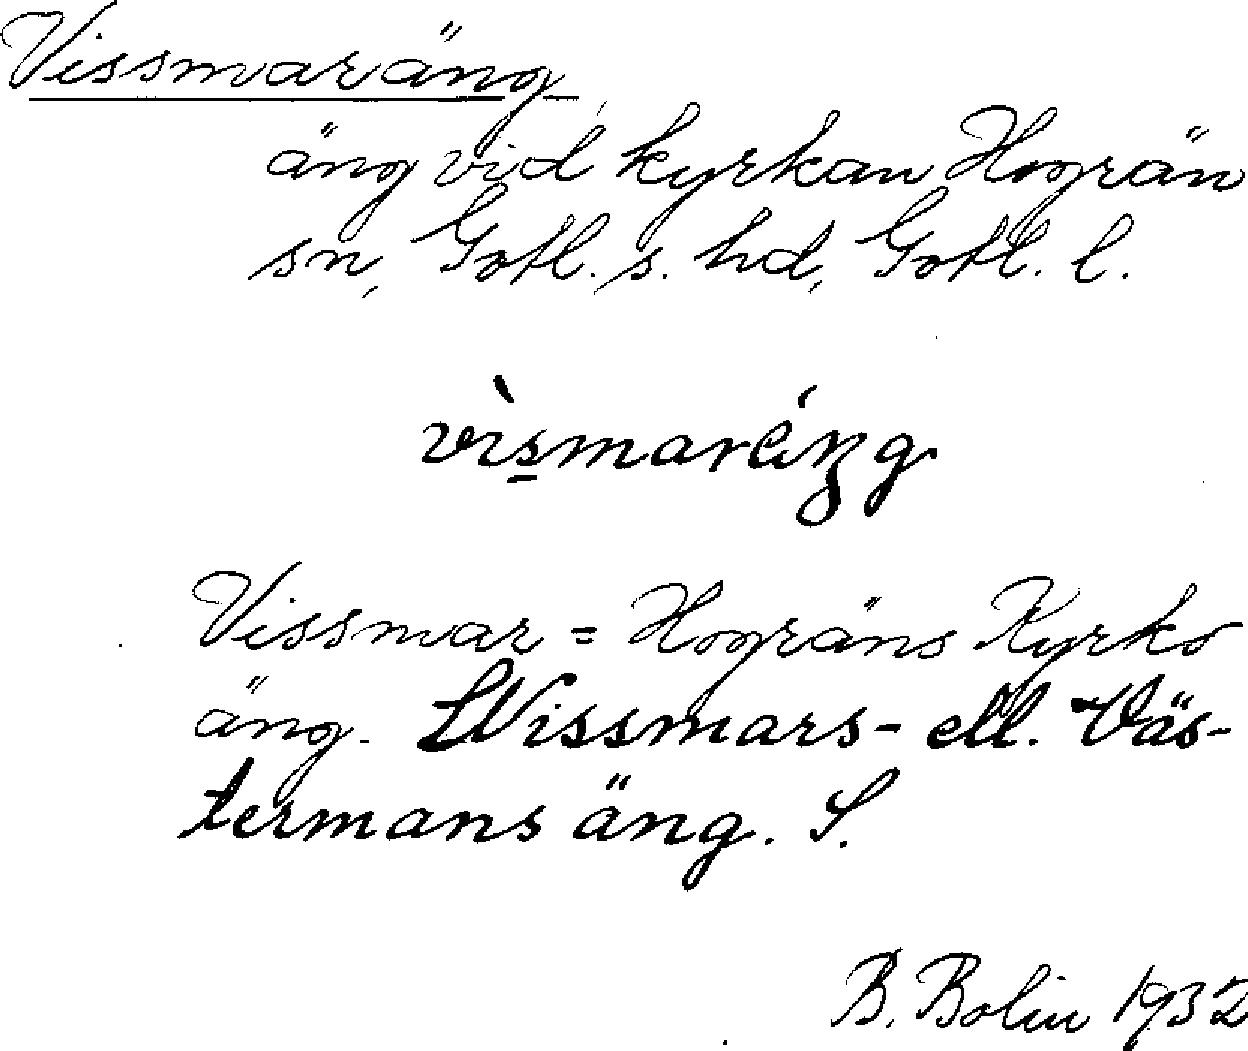 Vissmaräng
äng vid kyrkan Hogrän
sn, Gotl. s. hd, Gotl. l.
vìs̠maréŋg
Vissmar = Hogräns Kyrko
äng. Wissmars- ell. Väs-
termans äng. S.
B. Bolin 1932